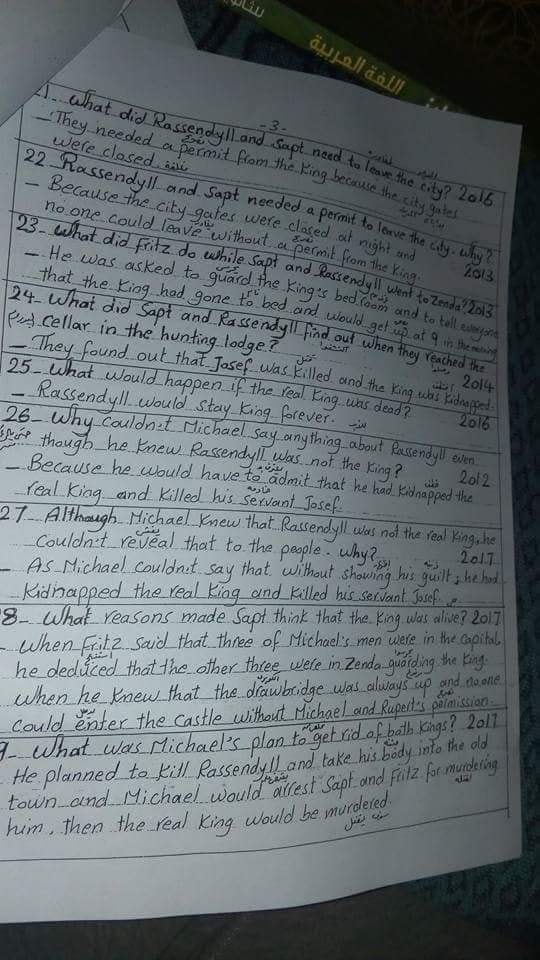 للثانوية
اللغة العربية
-3-
1- What did Rassendyll and Sapt need to leave the city? 2016
- They needed a permit from the King because the city gates
were closed.
22 Rassendyll and Sapt needed a permit to leave the city. Why?
- Because the city gates were closed at night and 2013
no one could leave without a permit from the King.
23- What did Fritz do while Sapt and Rassendyll went to Zenda? 2013
- He was asked to guard the King's bedroom and to tell everyone
that the King had gone to bed and would get up at 9 in the morning
24- What did Sapt and Rassendyll find out when they reached the
cellar in the hunting lodge? 2014
- They found out that Josef was killed and the King was kidnapped.
25- What would happen if the real King was dead? 2016
- Rassendyll would stay King forever.
26- Why couldn't Michael say anything about Rassendyll even
though he knew Rassendyll was not the King? 2012
- Because he would have to admit that he had kidnapped the
real King and killed his servant Josef.
27- Although Michael knew that Rassendyll was not the real King, he
couldn't reveal that to the people. why? 2017
- As Michael couldn't say that without showing his guilt, he had
kidnapped the real King and killed his servant Josef.
8- What reasons made Sapt think that the King was alive? 2017
- When Fritz said that three of Michael's men were in the capital,
he deduced that the other three were in Zenda guarding the King.
when he knew that the drawbridge was always up and no one
could enter the Castle without Michael and Rupert's permission.
9- What was Michael's plan to get rid of both Kings? 2017
He planned to Kill Rassendyll and take his body into the old
town and Michael would arrest Sapt and Fritz for murdering
him, then the real King would be murdered.
سوف يقتل